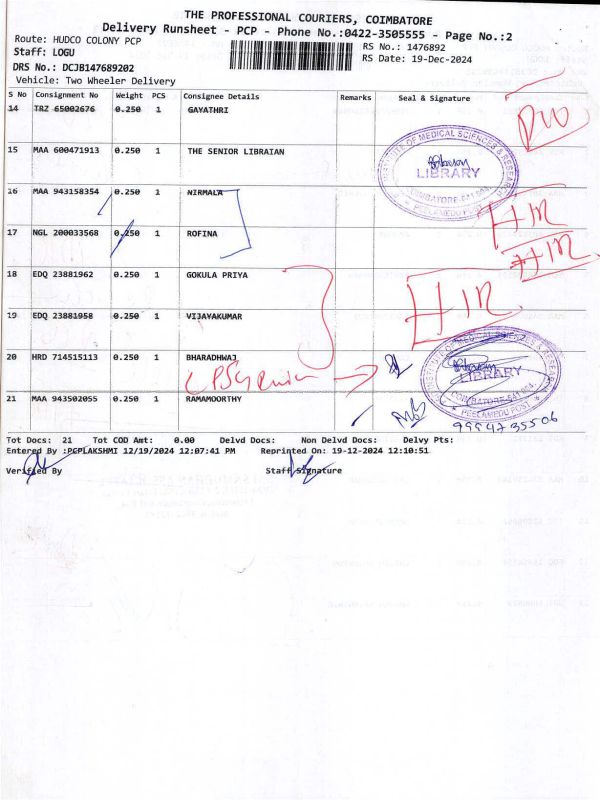 THE PROFESSIONAL COURIERS, COIMBATORE
Delivery Runsheet - PCP - Phone No.:0422-3505555 - Page No.:2
Route: HUDCO COLONY PCP
RS No.: 1476892
Staff: LOGU
RS Date: 19-Dec-2024
DRS No.: DCJB147689202
Vehicle: Two Wheeler Delivery
S No Consignment No Weight PCS Consignee Details Remarks Seal & Signature
14 TRZ 65002676 0.250 1 GAYATHRI
15 MAA 600471913 0.250 1 THE SENIOR LIBRAIAN
INSTITUTE OF MEDICAL SCIENCES & RESEARCH
LIBRARY
COIMBATORE-641 004
PEELAMEDU POST
16 MAA 943158354 0.250 1 NIRMALA
17 NGL 200033568 0.250 1 ROFINA
18 EDQ 23881962 0.250 1 GOKULA PRIYA
19 EDQ 23881958 0.250 1 VIJAYAKUMAR
20 HRD 714515113 0.250 1 BHARADHWAJ
INSTITUTE OF MEDICAL SCIENCES & RESEARCH
LIBRARY
COIMBATORE-641 004
PEELAMEDU POST
21 MAA 943502055 0.250 1 RAMAMOORTHY
9994735506
Tot Docs: 21 Tot COD Amt: 0.00 Delvd Docs: Non Delvd Docs: Delvy Pts:
Entered By :PCPLAKSHMI 12/19/2024 12:07:41 PM Reprinted On: 19-12-2024 12:10:51
Verified By Staff Signature